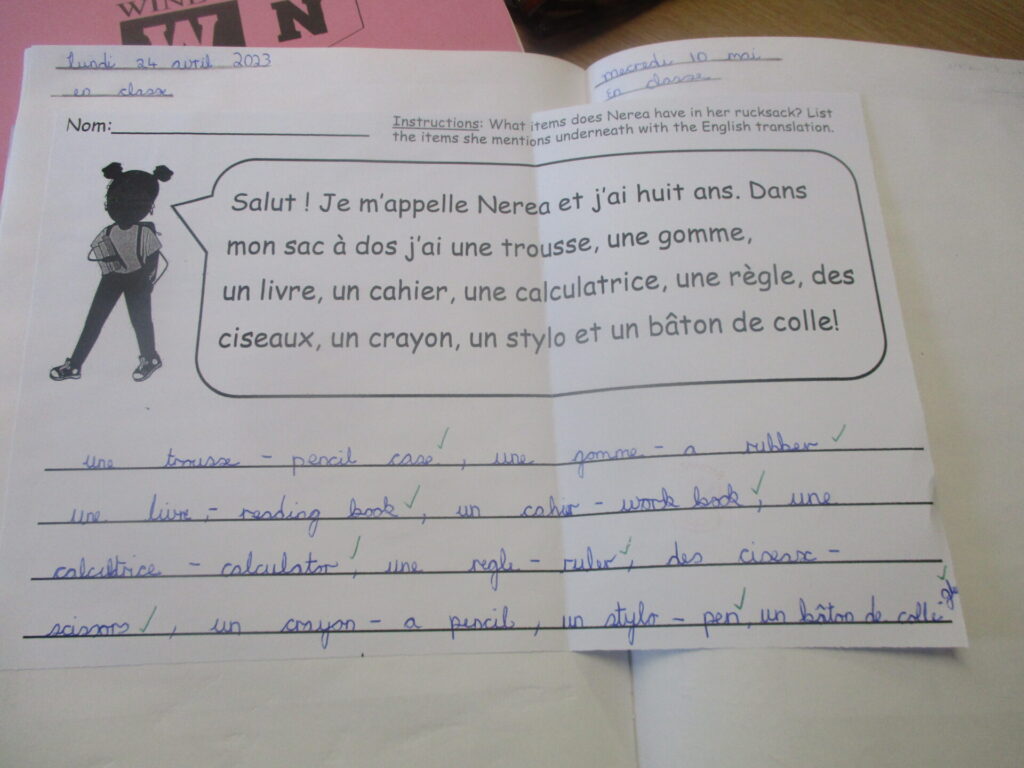 WIN
W N
lundi 24 avril 2023
en class
mecredi 10 mai
En classe
Nom:
Instructions: What items does Nerea have in her rucksack? List
the items she mentions underneath with the English translation.
Salut ! Je m'appelle Nerea et j'ai huit ans. Dans
mon sac à dos j'ai une trousse, une gomme,
un livre, un cahier, une calculatrice, une règle, des
ciseaux, un crayon, un stylo et un bâton de colle!
une trousse - pencil case, une gomme - a rubber
une livre,- reading book, un cahier - work book, une
calcultrice - calculator, une regle - ruler, des ciseax -
scissors, un crayon - a pencil, un stylo - pen, un bâton de colle